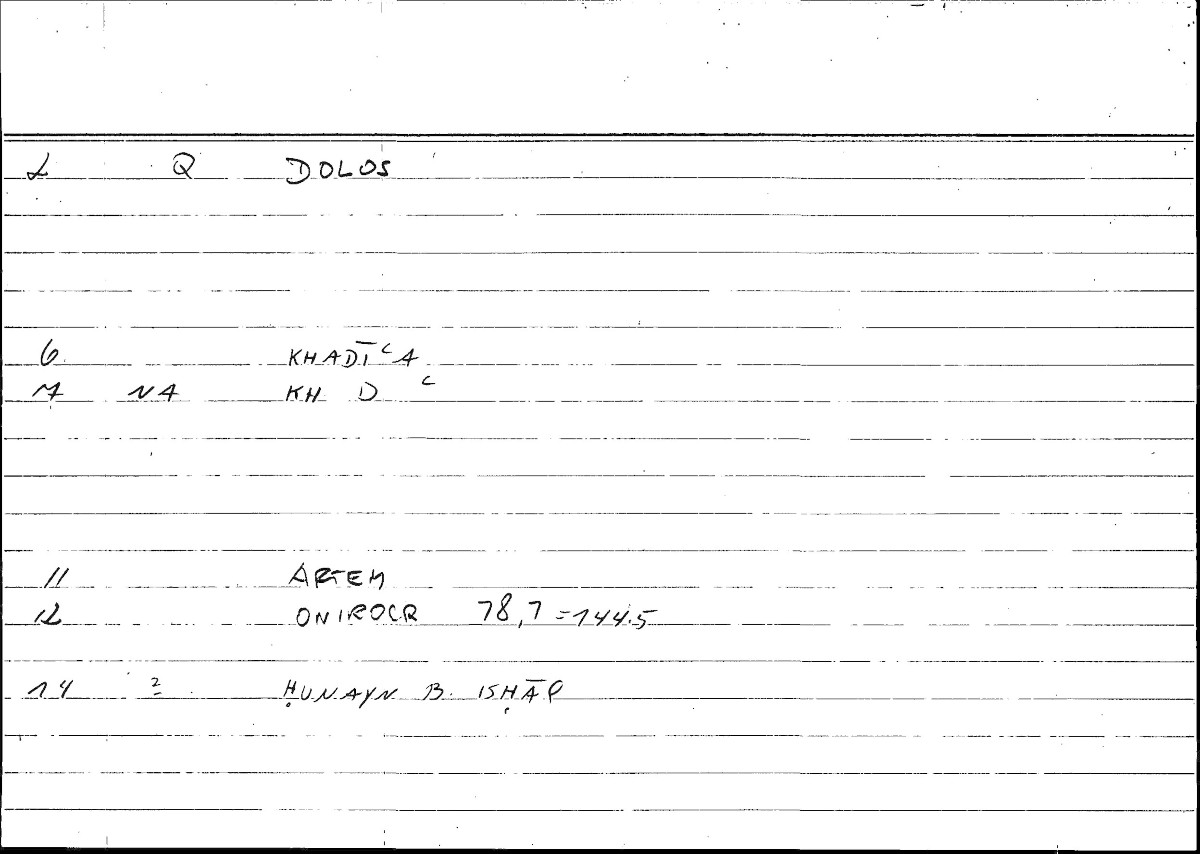 2 Q DOLOS
6 KHADĪʿA
7 NA KH D ʿ
11 ARTEM
12 ONIROCR 78,7=144.5
14 2 ḤUNAYN B. ISḤĀQ